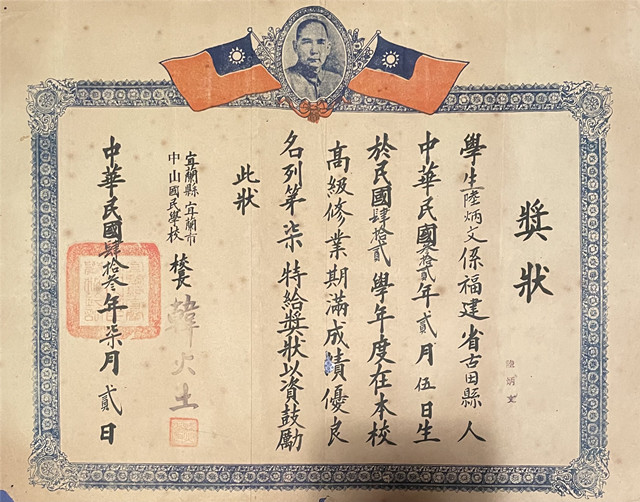 獎狀
學生陸炳文係福建省古田縣人
中華民國叁拾貳年貳月伍日生
於民國肆拾貳學年度在本校
高級修業期滿成績優良
名列第柒特給獎狀以資鼓勵
此狀
宜蘭縣宜蘭市
中山國民學校
校長 韓火土
中華民國肆拾叁年柒月貳日